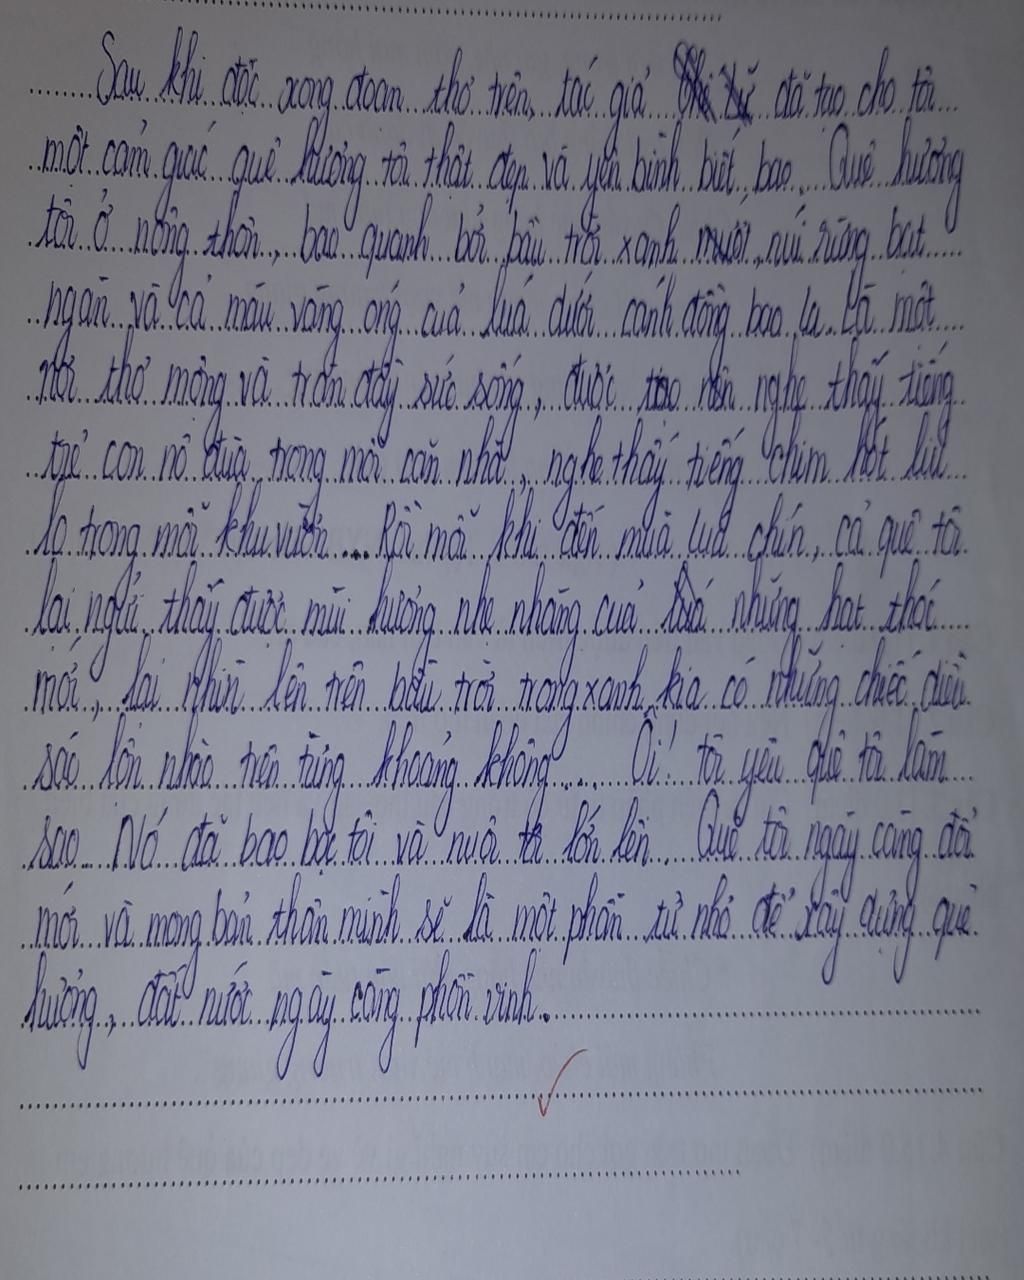 Sau khi đọc xong đoạn thơ trên, tác giả đã tạo cho tôi
một cảm giác quê hương tôi thật đẹp và yên bình biết bao. Quê hương
tôi ở nông thôn, bao quanh bởi bầu trời xanh mướt, núi rừng bạt
ngàn và cả màu vàng óng của luá dưới cánh đồng bao la. Là một
nơi thơ mộng và tràn đầy sức sống, được tạo nên nghe thấy tiếng
trẻ con nô đùa trong mỗi căn nhà, nghe thấy tiếng chim hót líu
lo trong mỗi khu vườn.... Rồi mỗi khi đến mùa luá chín, cả quê tôi
lại ngửi thấy được mùi hương nhẹ nhàng của những hạt thóc
mới, lại nhìn lên trên bầu trời trong xanh kia có những chiếc diều
sáo lộn nhào trên từng khoảng không.... Ôi! tôi yêu quê tôi làm
sao. Nó đã bao bọc tôi và nuôi lớn lên. Quê tôi ngày càng đổi
mới và mong bản thân mình sẽ là một phần tử nhỏ để xây dựng quê
hương, đất nước ngày càng phồn vinh.